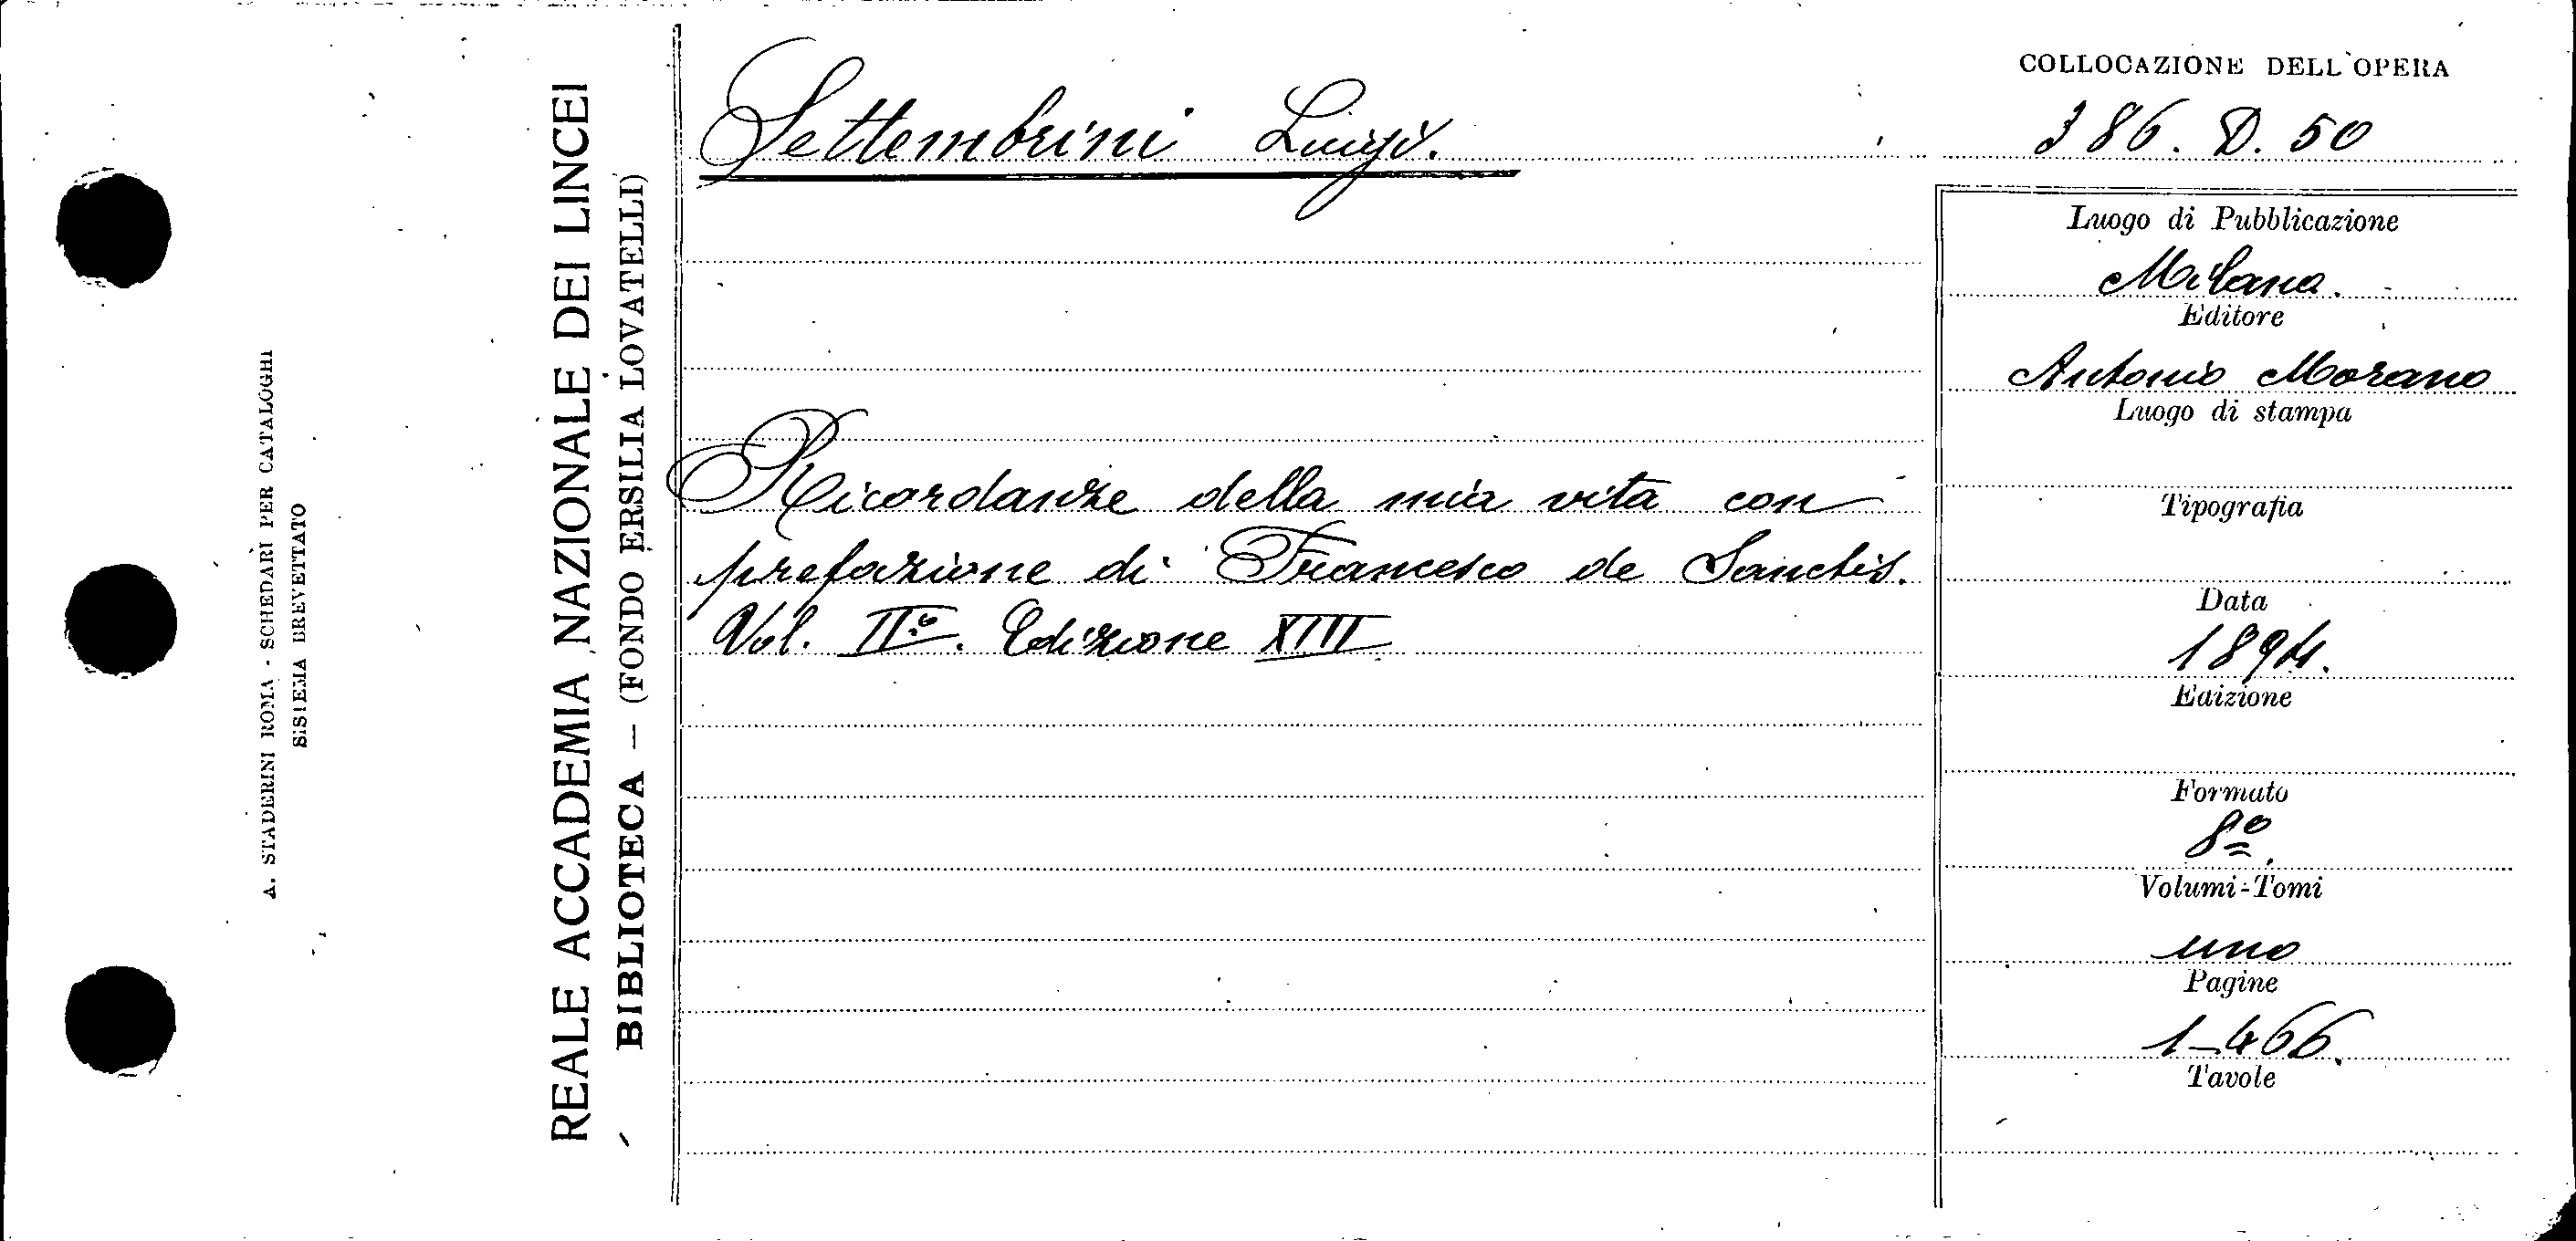 A. STADERINI ROMA - SCHEDARI PER CATALOGHI
SISTEMA BREVETTATO
REALE ACCADEMIA NAZIONALE DEI LINCEI
BIBLIOTECA — (FONDO ERSILIA LOVATELLI)
Settembrini Luigi.
Ricordanze della mia vita con
prefazione di Francesco de Sanctis.
Vol. IIº. Edizione XIII
COLLOCAZIONE DELL'OPERA
386. D. 50
Luogo di Pubblicazione
Milano.
Editore
Antonio Morano
Luogo di stampa
Tipografia
Data
1894.
Edizione
Formato
8º.
Volumi-Tomi
uno
Pagine
1-466.
Tavole